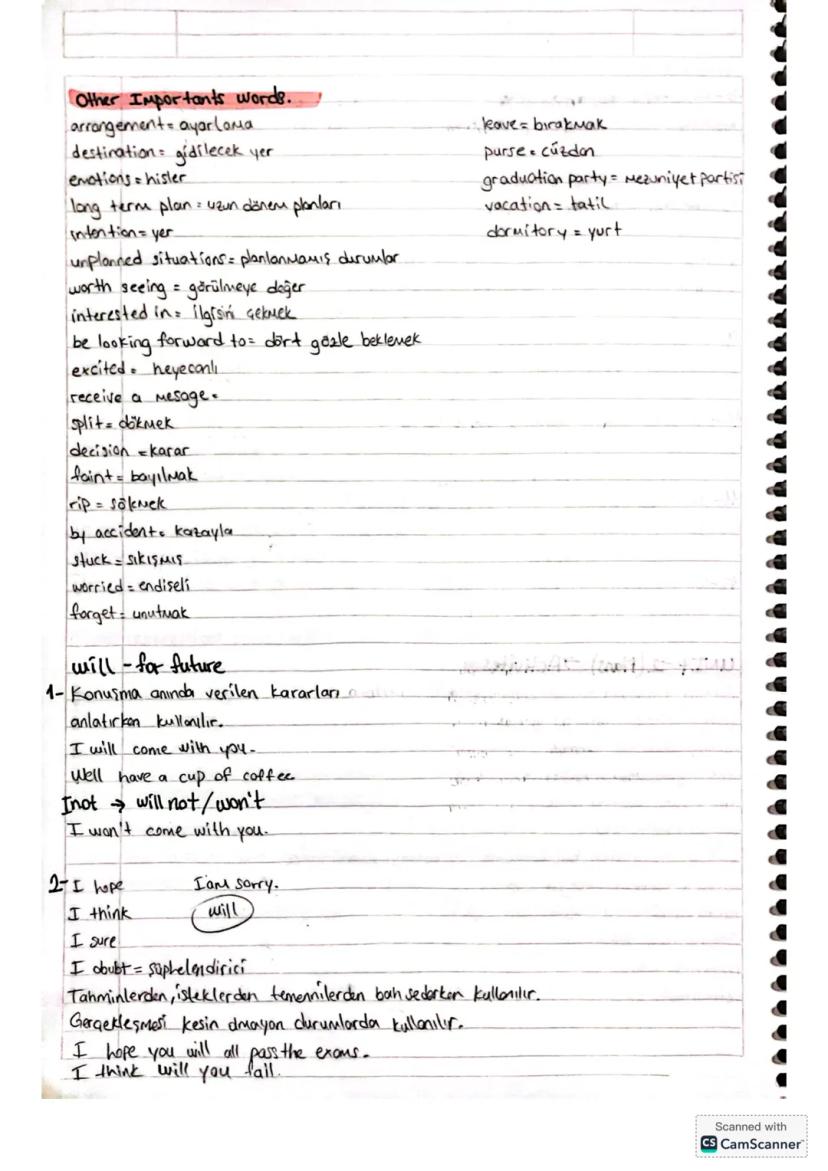 Other Importants words.
arrangement= ayarlama
destination= gidilecek yer
emotions= hisler
long term plan= uzun dönem planları
intention= yer
unplanned situations= planlanmamış durumlar
worth seeing = görülmeye değer
interested in= ilgisini çekmek
be looking forward to= dört gözle beklemek
excited= heyecanlı
receive a mesage=
split= dökmek
decision =karar
faint= bayılmak
rip = sökmek
by accident= kazayla
stuck= sıkışmış
worried= endişeli
forget= unutmak
leave= bırakmak
purse= cüzdan
graduation party= mezuniyet partisi
vacation= tatil
dormitory = yurt
will - for future
1- Konuşma anında verilen kararları
anlatırken kullanılır.
I will come with you.
We'll have a cup of coffee
Inot → will not/won't
I won't come with you.
2- I hope I am sorry.
I think will
I sure
I doubt = şüphelendirici
Tahminlerden, isteklerden temennilerden bahsederken kullanılır.
Gerçekleşmesi kesin olmayan durumlarda kullanılır.
I hope you will all pass the exams.
I think will you fall.
Scanned with
CS CamScanner